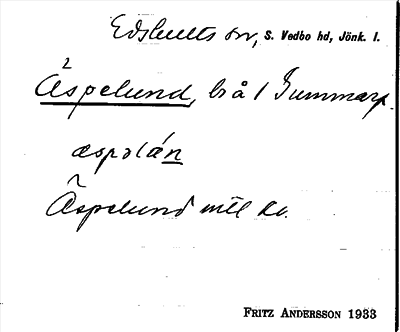 Edshults sn, S. Vedbo hd, Jönk. l.
Äspelund, brå / Gummarp.
æspəlán
Äspelund mtl kv.
FRITZ ANDERSSON 1933